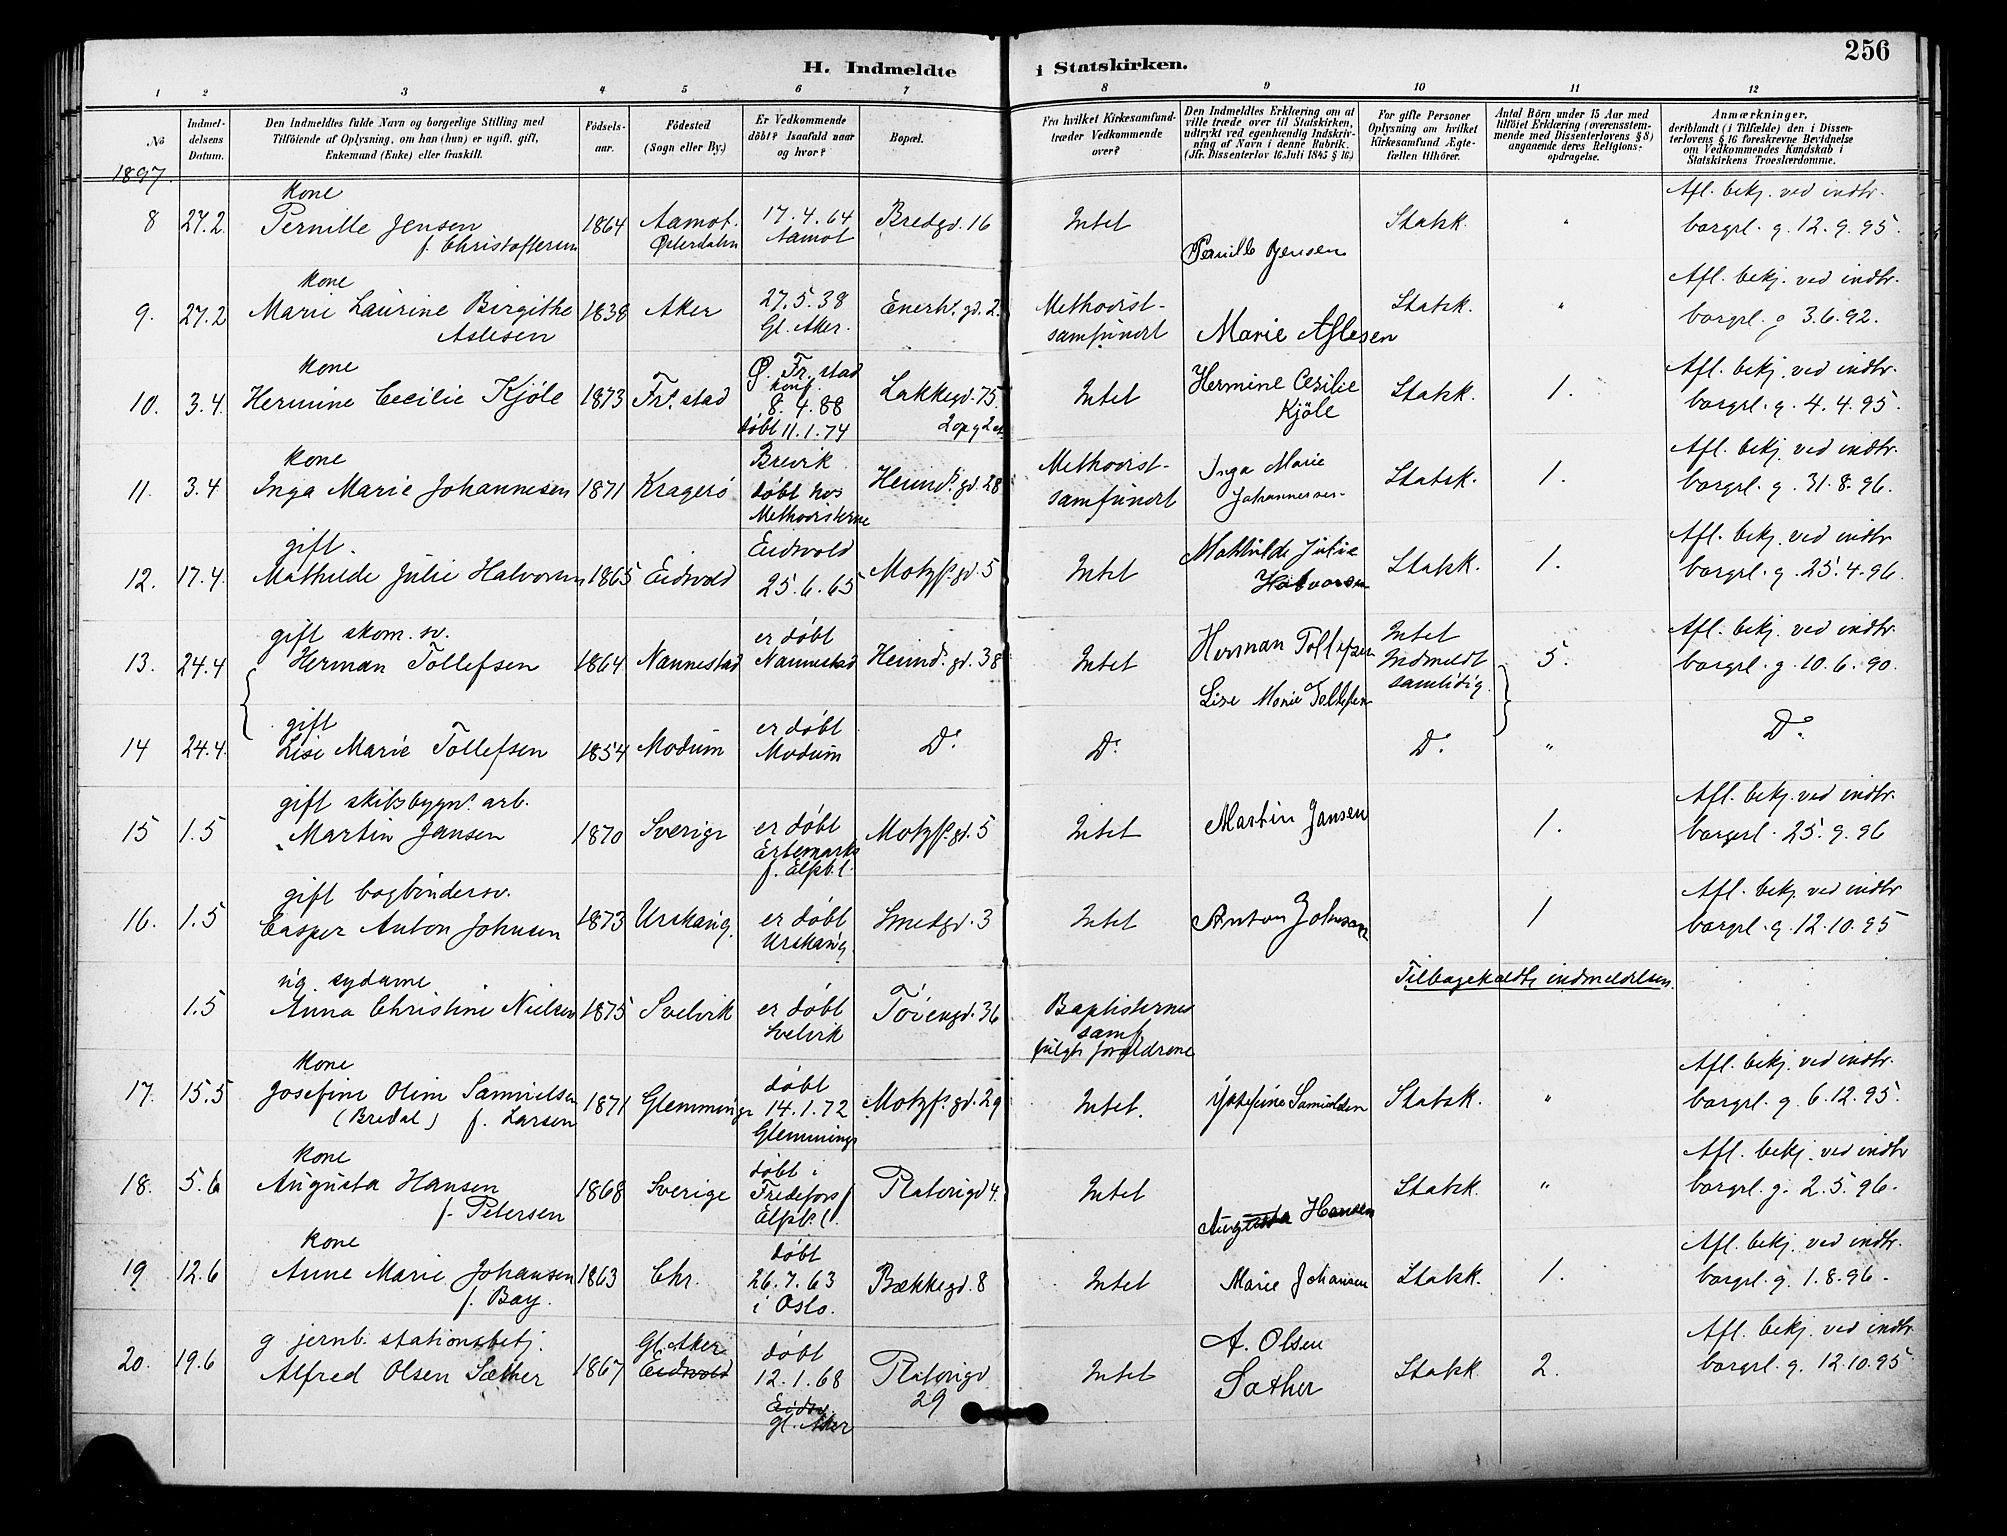 256
H. Indmeldte i Statskirken.
1 2 3 4 5 6 7 8 9 10 11 12
No
Indmel-
delsens
Datum.
Den Indmeldtes fulde Navn og borgerlige Stilling med
Tilföiende af Oplysning, om han (hun) er ugift, gift,
Enkemand (Enke) eller fraskilt.
Födsels-
aar.
Födested
(Sogn eller By.)
Er Vedkommende
döbt? Isaafald naar
og hvor?
Bopæl.
Fra hvilket Kirkesamfund
træder Vedkommende
over?
Den Indmeldtes Erklæring om at
ville træde over til Statskirken,
udtrykt ved egenhændig Indskriv-
ning af Navn i denne Rubrik.
(Jfr. Dissenterlov 16 Juli 1845 § 16.)
For gifte Personer
Oplysning om hvilket
Kirkesamfund Ægte-
fællen tilhörer.
Antal Börn under 15 Aar med
tilföiet Erklæring (overensstem-
mende med Dissenterlovens § 8)
angaaende deres Religions-
opdragelse.
Anmærkninger,
deriblandt (i Tilfælde) den i Dissen-
terlovens § 16 foreskrevne Bevidnelse
om Vedkommendes Kundskab i
Statskirkens Troeslærdomme.
1897.
kone
8 27.2 Pernille Jensen 1864 Aamot 17.4.64 Bredgd. 16 Intet Statsk. "
f. Christoffersen Österdalen Aamot
Pernille Jensen
Afl. bekj. ved indtr.
borgrl. g. 12.9.95.
kone
9. 27.2 Marie Laurine Birgithe 1838 Aker 27.5.38 Enerh. gd. 2. Methodist- Statsk. "
Aslesen Gl. Aker. samfundet Marie Aslesen
Afl. bekj. ved indtr.
borgrl. g 3.6.92.
kone
10. 3.4. Hermine Cecilie Kjöle 1873 Frs. stad Ø. Fr. stad Lakkegd. 75. Intet Hermine Cesilie Statsk. 1.
konf.
8.4.88 Kjöle
döbt 11.1.74 2 opg 2 et
Afl. bekj. ved indtr.
borgrl. g. 4.4.95.
kone
11. 3.4 Inga Marie Johannesen 1871 Kragerö Brevik Heimd. gd. 28 Methodist- Inga Marie Statsk. 1.
döbt hos samfundet Johannesen
Methodisterne
Afl. bekj. ved indtr.
borgrl. g. 31.8.96.
gift.
12. 17.4. Mathilde Julie Halvorsen 1865 Eidsvold Eidsvold Motzf. gd. 5 Intet Mathilde Julie Statsk. 1.
25.6.65 Halvorsen
Afl. bekj. ved indtr
borgrl. g. 25.4.96.
gift skom. sv.
13. 24.4 Herman Tollefsen 1864 Nannestad er döbt Heimd. gd. 38 Intet Herman Tollefsen Intet 5.
Nannestad Indmeldt
samtidig.
Lise Marie Tollefsen
Afl. bekj. ved indtr.
borgrl. g. 10.6.90.
gift
14 24.4. Lise Marie Tollefsen 1854 Modum er döbt Do. Do. Do. " Do.
Modum
gift skibsbygn. arb.
15 1.5 Martin Jansen 1870 Sverige er döbt Motzf. gd. 5 Intet Martin Jansen 1.
Ertemarks
f. Elfsb. l.
Afl. bekj. ved indtr.
borgerl. 25.9.96
gift bogbindersv.
16. 1.5 Casper Anton Johnsen 1873 Urskaug. er döbt Smedgd. 3 Intet Anton Johnsen 1
Urskaug.
Afl. bekj. ved indtr
borgrl. g. 12.10.95
ug. sydame
1.5 Anna Christine Nielsen 1875 Svelvik er döbt Töiengd. 36 Baptisternes
Svelvik samf.
fulgt forældrene
Tilbagekaldte indmeldelsen.
kone
17. 15.5 Josefine Olim Samuelsen 1871 Glemminge döbt Motzfs. gd. 29 Intet. Josefine Samuelsen Statsk. "
(Bredal) f. Larsen 14.1.72
Glemminge
Afl. bekj. ved indtr.
borgrl. g. 6.12.95.
kone
18. 5.6 Augusta Hansen 1868 Sverige döbt i Platougd 4. Intet Augusta Hansen Statsk. "
f. Petersen Fredefors f
Elfsb. l.
Afl. bekj. ved indtr
borgrl. g. 2.5.96.
kone
19 12.6 Anne Marie Johansen 1863 Chr. döbt Bækkegd. 8 Intet Marie Johansen Statsk. 1.
f. Bay. 26.7.63
i Oslo.
Afl. bekj. ved indtr.
borgrl. g. 1.8.96.
g. jernb. stationsbetj.
20. 19.6 Alfred Olsen Sæther 1867 Gl. Aker döbt Platougd Intet A. Olsen Statsk. 2.
Eidsvold 12.1.68 29 Sæther
Eidsv.
gl. Aker
Afl. bekj. ved indtr
borgrl. g. 12.10.95